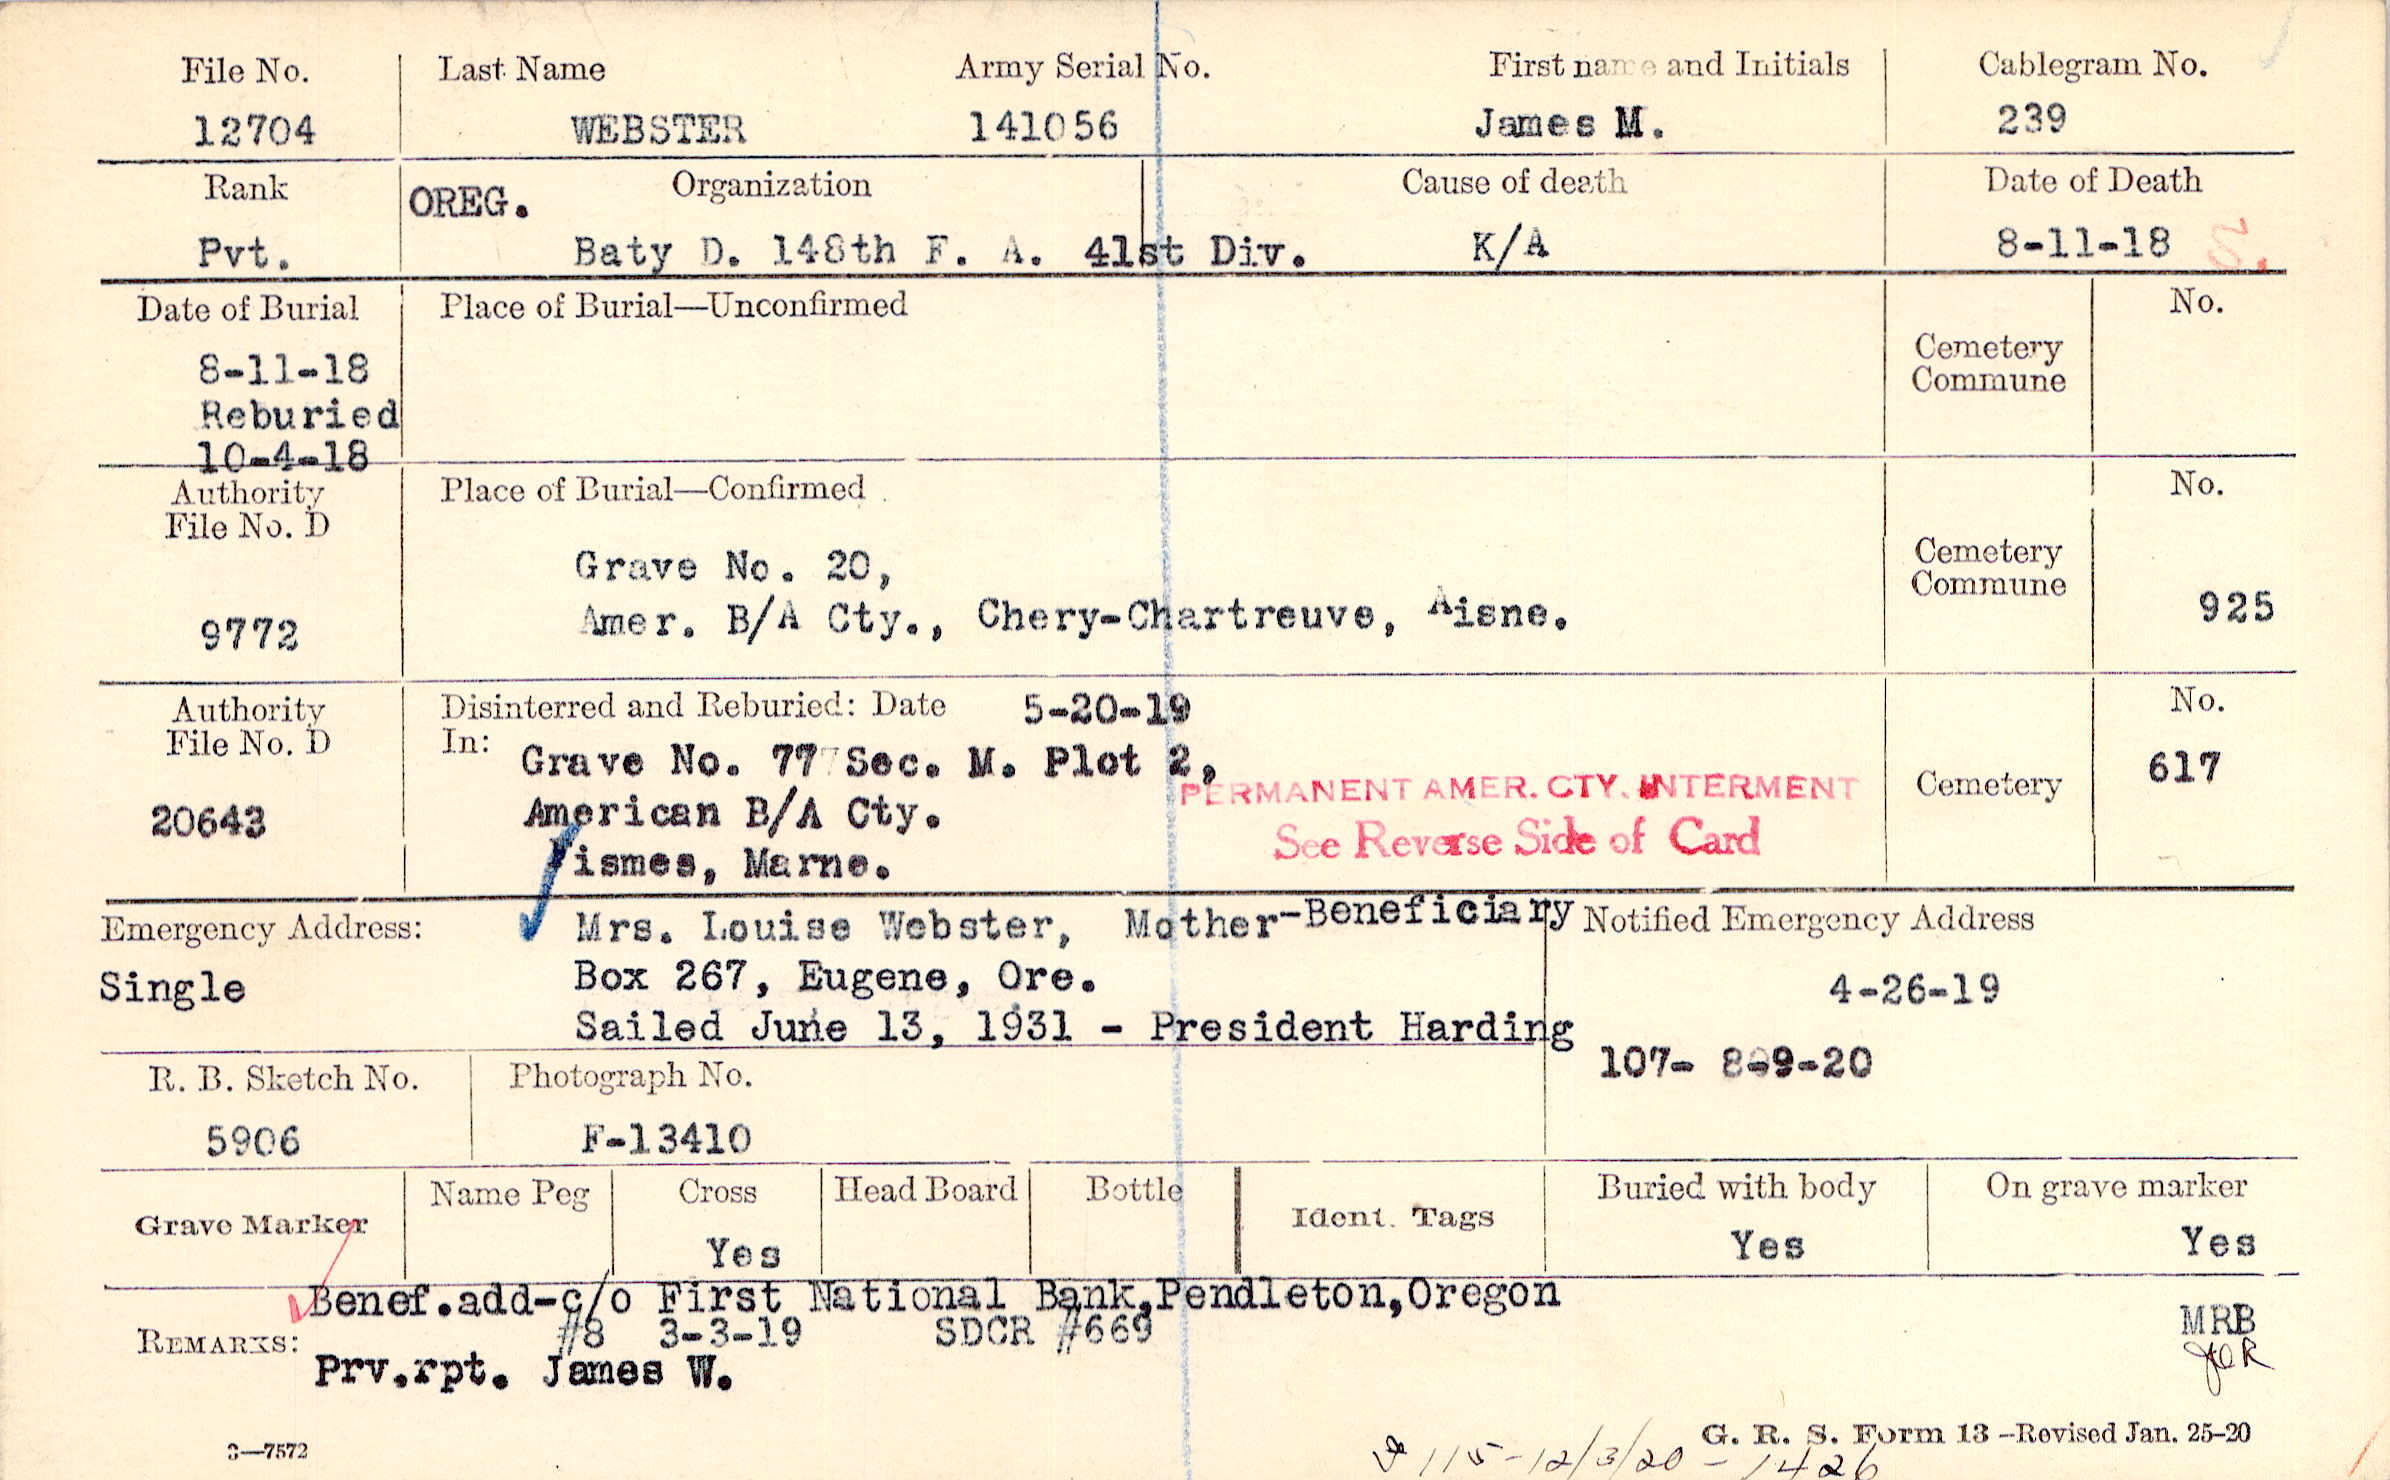 File No. Last Name Army Serial No. First name and Initials Cablegram No.
12704 WEBSTER 141056 James M. 239
Rank OREG. Organization Cause of death Date of Death
Pvt. Baty D. 148th F. A. 41st Div. K/A 8-11-18
Date of Burial Place of Burial—Unconfirmed No.
8-11-18 Cemetery
Commune
Reburied
10-4-18
Authority Place of Burial—Confirmed No.
File No. D
Grave No. 20, Cemetery
Commune
9772 Amer. B/A Cty., Chery-Chartreuve, Aisne. 925
Authority Disinterred and Reburied: Date 5-20-19 No.
File No. D In: Grave No. 77 Sec. M. Plot 2, 617
PERMANENT AMER. CTY. INTERMENT Cemetery
20643 American B/A Cty.
See Reverse Side of Card
Fismes, Marne.
Emergency Address: Mrs. Louise Webster, Mother-Beneficiary Notified Emergency Address
Single Box 267, Eugene, Ore. 4-26-19
Sailed June 13, 1931 - President Harding
107- 9-20
R. B. Sketch No. Photograph No.
5906 F-13410
Grave Marker Name Peg Cross Head Board Bottle Ident. Tags Buried with body On grave marker
Yes Yes Yes
Benef.add-c/o First National Bank,Pendleton,Oregon
REMARKS: #8 3-3-19 SDCR #669 MRB
Prv.rpt. James W.
G. R. S. Form 13 -Revised Jan. 25-20
3—7572 115-12/3/20 - 1426